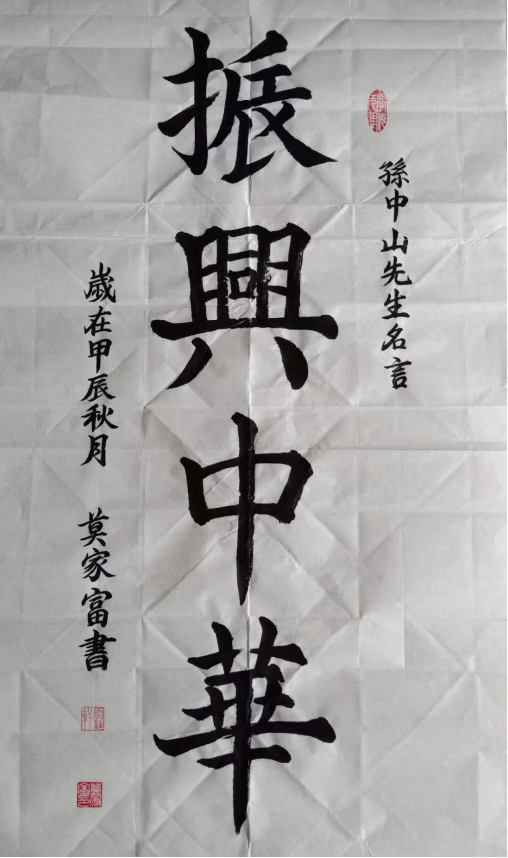 孫中山先生名言
振興中華
歲在甲辰秋月 莫家富書